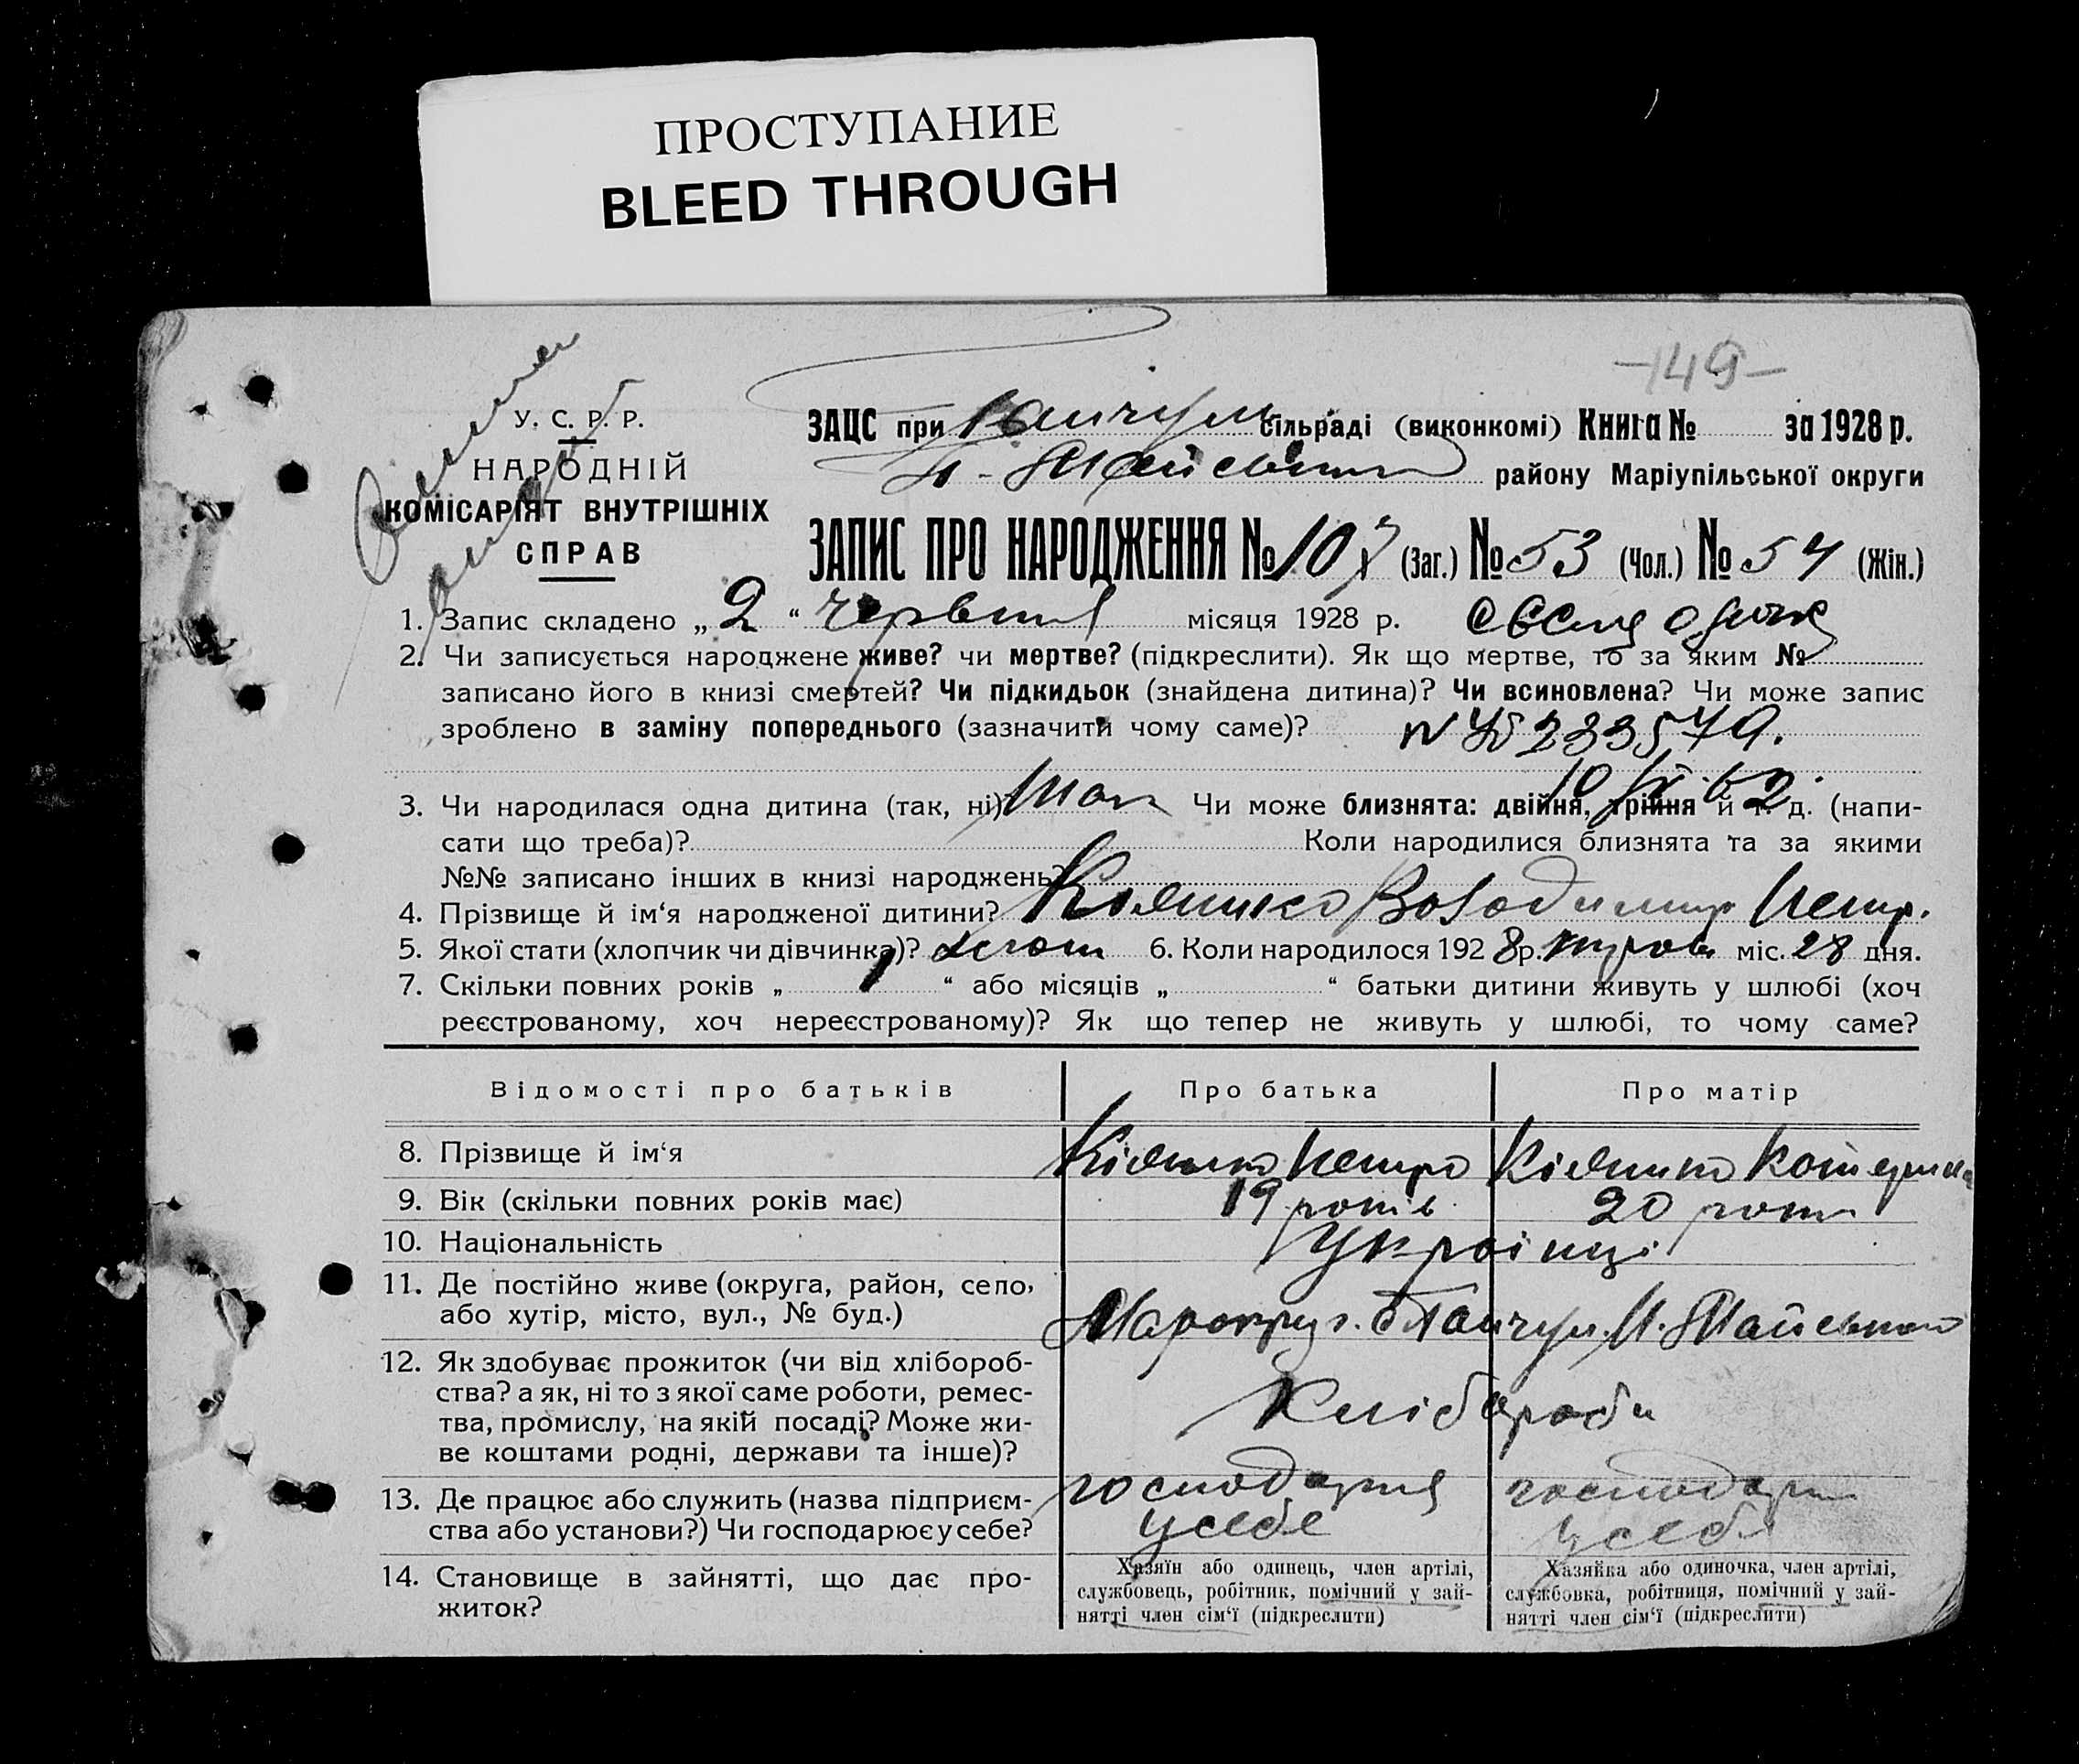 ПРОСТУПАНИЕ
BLEED THROUGH
-149-
У. С. Р. Р.
НАРОДНІЙ
КОМІСАРІЯТ ВНУТРІШНІХ
СПРАВ
ЗАЦС при Гайчул сільраді (виконкомі) Книга № за 1928 р.
району Маріупільської округи
ЗАПИС ПРО НАРОДЖЕННЯ № 107 (Заг.) № 53 (Чол.) № 54 (Жін.)
1. Запис складено „ 2 “ червня місяця 1928 р.
2. Чи записується народжене живе? чи мертве? (підкреслити). Як що мертве, то за яким №
записано його в книзі смертей? Чи підкидьок (знайдена дитина)? Чи всиновлена? Чи може запис
зроблено в заміну попереднього (зазначити чому саме)?
3. Чи народилася одна дитина (так, ні) Чи може близнята: двійня, трійня й т. д. (напи-
сати що треба)? Коли народилися близнята та за якими
№№ записано інших в книзі народжень?
4. Прізвище й ім‘я народженої дитини? Володимир Петр.
5. Якої стати (хлопчик чи дівчинка)? 6. Коли народилося 1928 р. міс. 28 дня.
7. Скільки повних років „ 1 “ або місяців „ “ батьки дитини живуть у шлюбі (хоч
реєстрованому, хоч нереєстрованому)? Як що тепер не живуть у шлюбі, то чому саме?
Відомості про батьків Про батька Про матір
8. Прізвище й ім‘я Петро Катерина
9. Вік (скільки повних років має) 19 років 20 років
10. Національність Українці
11. Де постійно живе (округа, район, село,
або хутір, місто, вул., № буд.)
12. Як здобуває прожиток (чи від хлібороб-
ства? а як, ні то з якої саме роботи, ремес-
тва, промислу, на якій посаді? Може жи-
ве коштами родні, держави та інше)?
Хлібороби
13. Де працює або служить (назва підприєм-
ства або установи?) Чи господарює у себе?
у себе у себе
14. Становище в зайнятті, що дає про-
житок?
Хазяїн або одинець, член артілі,
службовець, робітник, помічний у зай-
нятті член сім‘ї (підкреслити)
Хазяйка або одиночка, член артілі,
службовка, робітниця, помічний у зай-
нятті член сім‘ї (підкреслити)